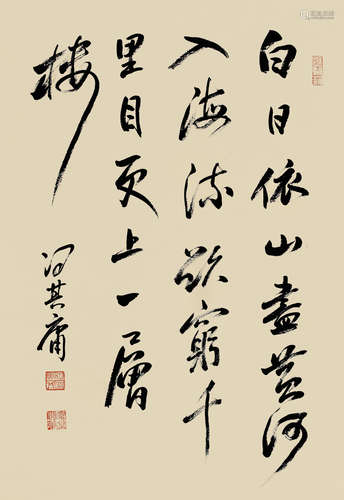 白日依山盡黄河
入海流欲窮千
里目更上一層
樓
冯其庸